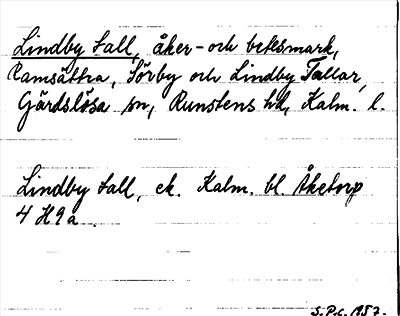 Lindby tall, åker- och betesmark,
Ramsättra, Sörby och Lindby Tallar,
Gärdslösa sn, Runstens hd, Kalm. l.
Lindby tall, ek. Kalm. bl. Åketorp
4 H 9 a.
S.P.c. 1957.